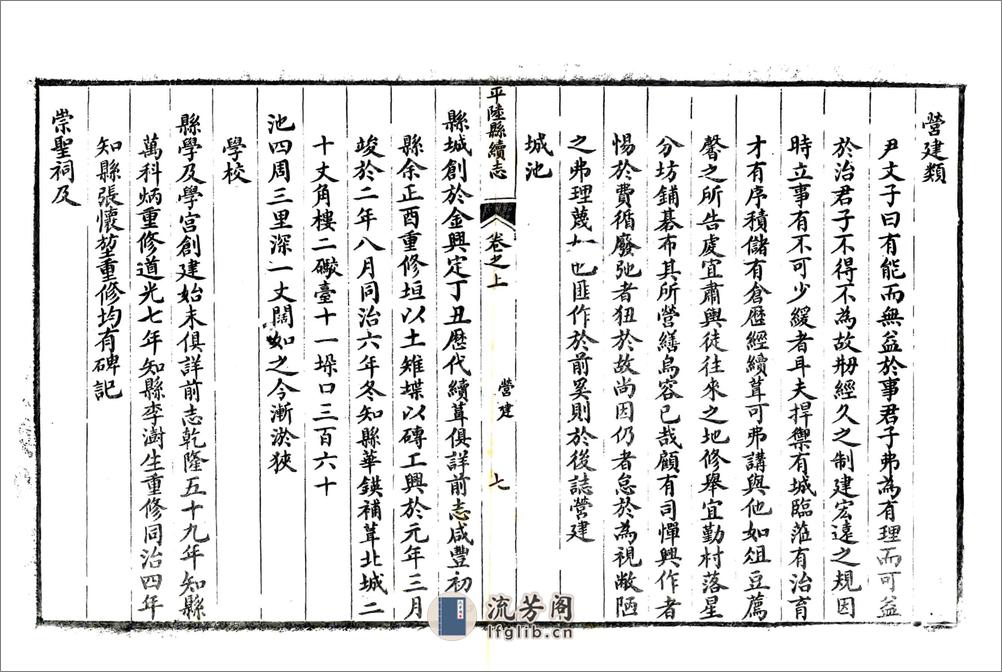 營建類
尹文子曰有能而無益於事君子弗為有理而可益
於治君子不得不為故刱經久之制建宏遠之規因
時立事有不可少緩者耳夫捍禦有城臨蒞有治育
才有序積儲有倉歷經續葺可弗講與他如俎豆薦
馨之所告處宜肅輿徒往來之地修舉宜勤村落星
分坊鋪碁布其所營繕烏容已哉顧有司憚興作者
惕於費循廢弛者狃於故尚因仍者怠於為視敝陋
之弗理蔑如也匪作於前奚則於後誌營建
城池
平陸縣續志
卷之上
營建
七
縣城創於金興定丁丑歷代續葺俱詳前志咸豐初
縣余正酉重修垣以土雉堞以磚工興於元年三月
竣於二年八月同治六年冬知縣華鍈補葺北城二
十丈角樓二礮臺十一垛口三百六十
池四周三里深一丈闊如之今漸淤狹
學校
縣學及學宮創建始末俱詳前志乾隆五十九年知縣
萬科炳重修道光七年知縣李澍生重修同治四年
知縣張懷堃重修均有碑記
崇聖祠及
流芳閣
lfglib.cn